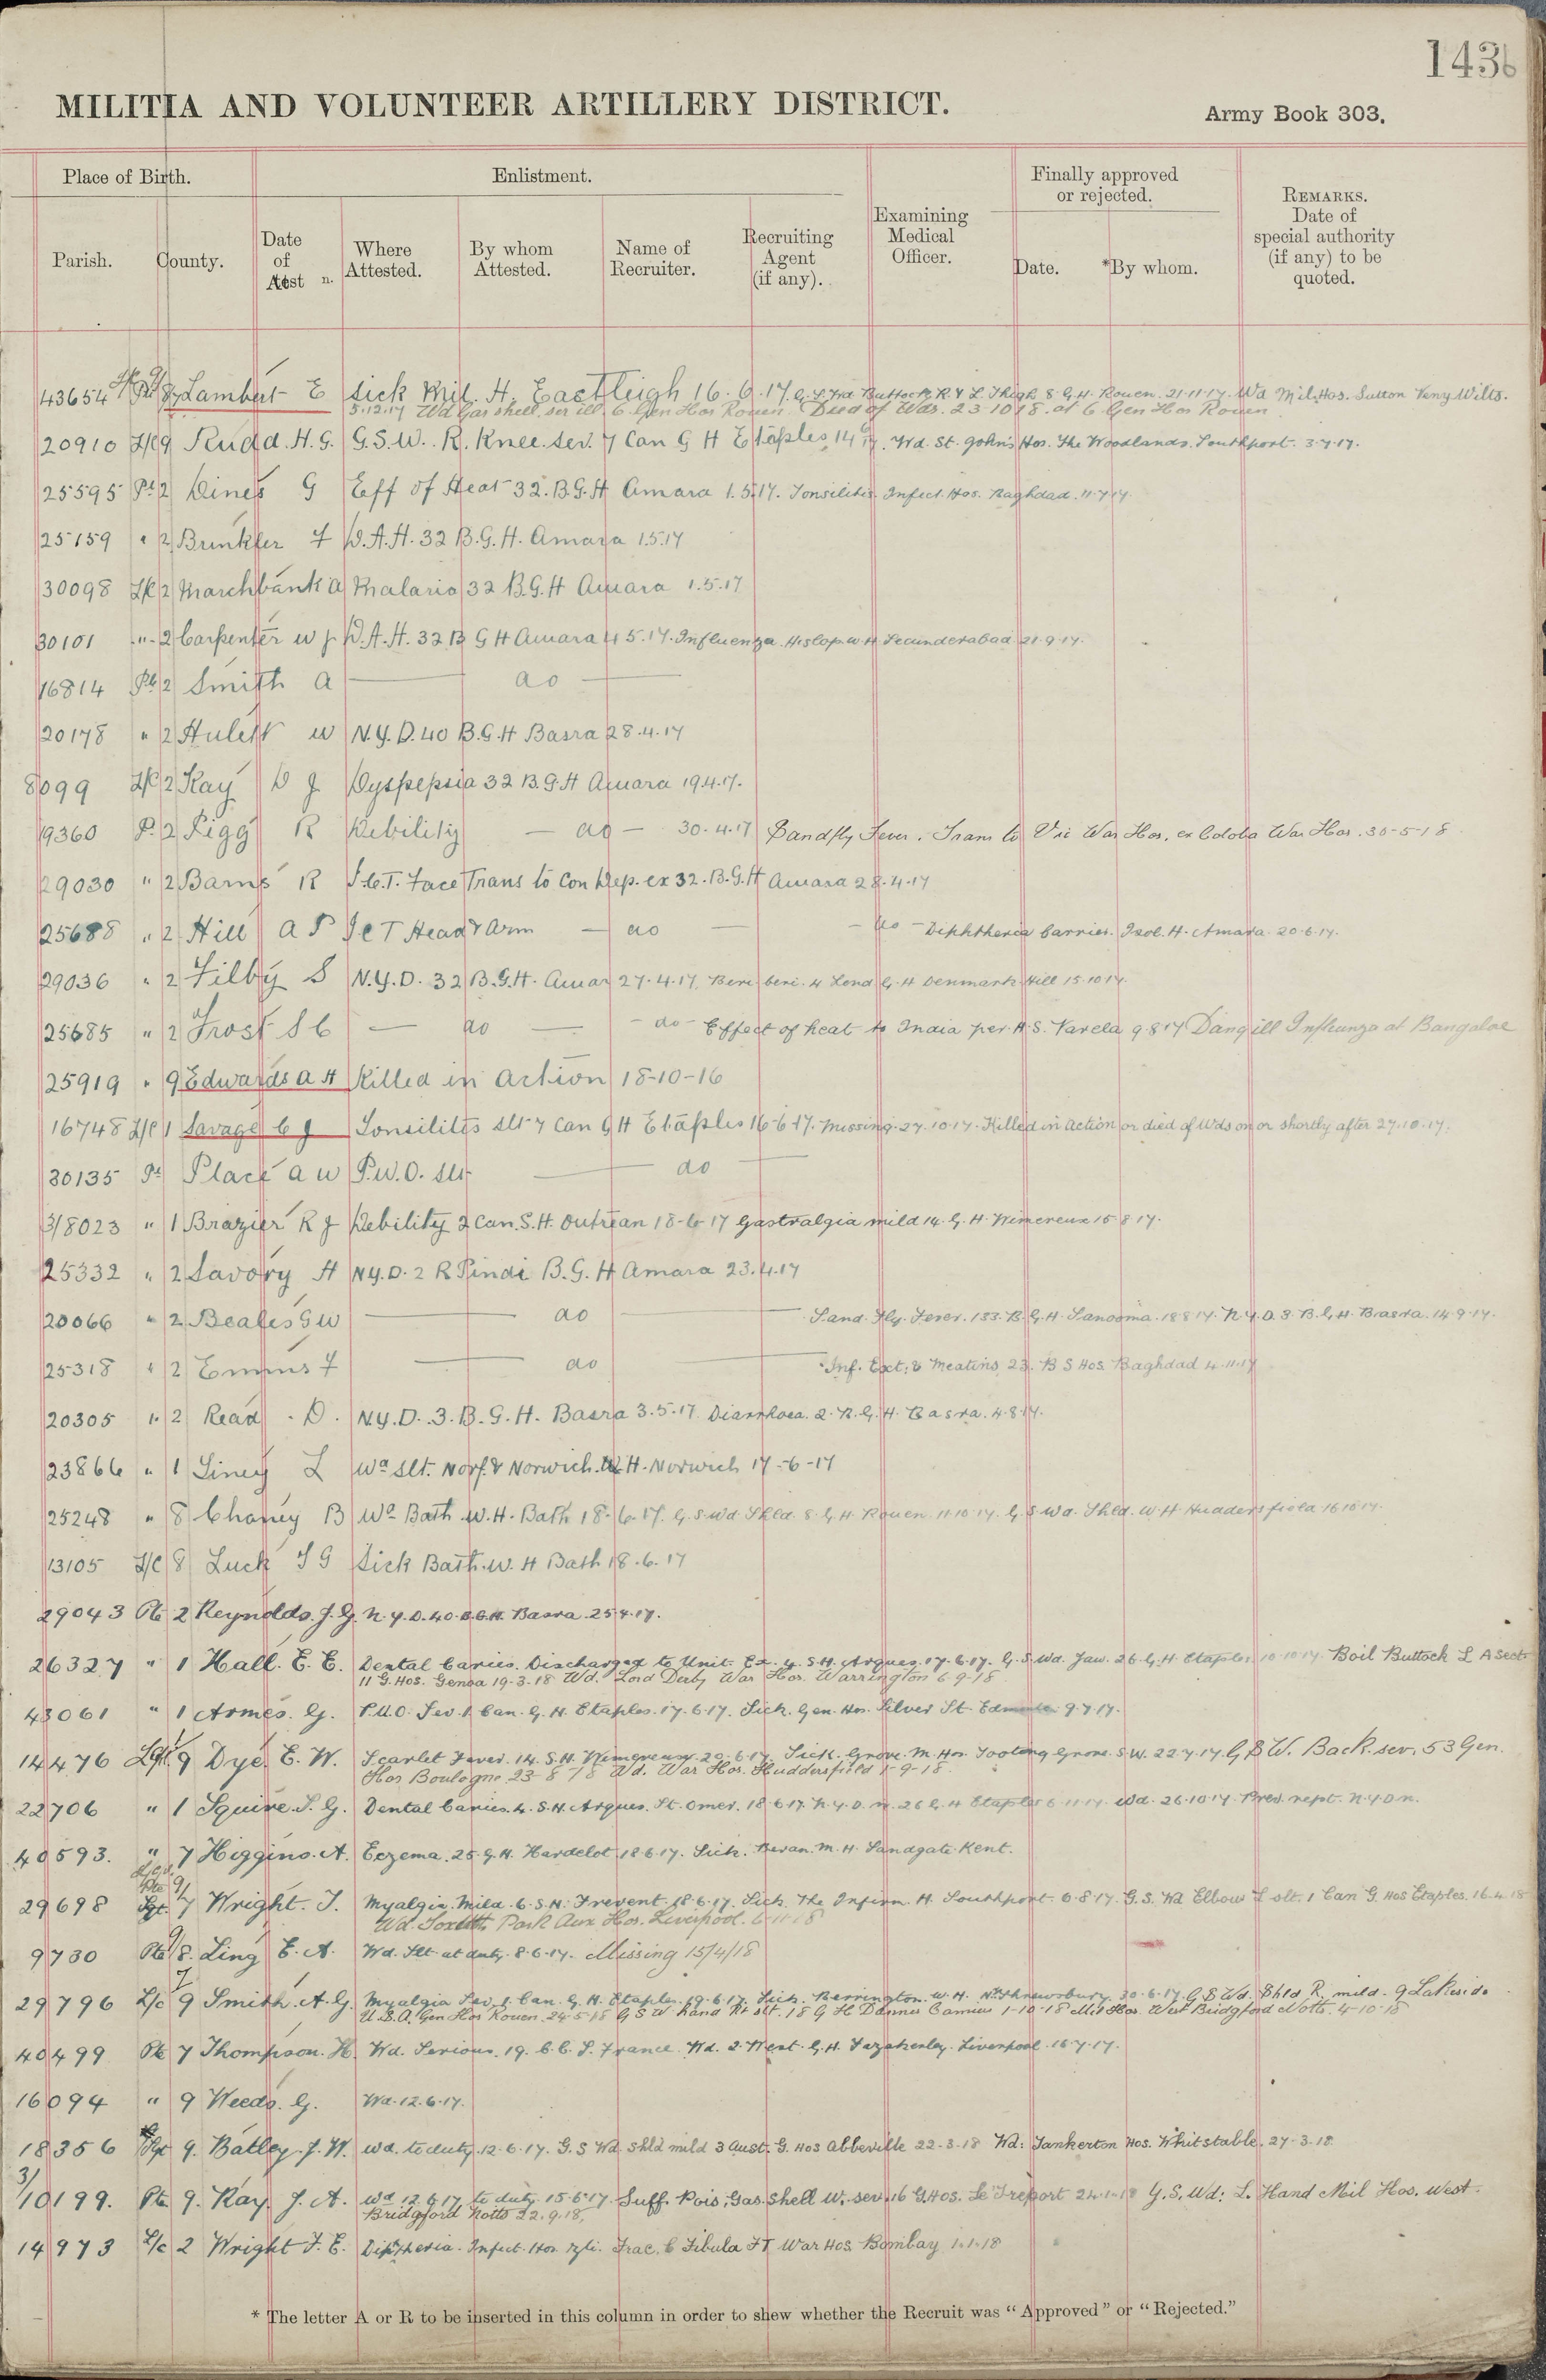 143b
MILITIA AND VOLUNTEER ARTILLERY DISTRICT.
Army Book 303.
Place of Birth.
Enlistment.
Finally approved or rejected.
Parish.
County.
Date of Attest n.
Where Attested.
By whom Attested.
Name of Recruiter.
Recruiting Agent (if any).
Examining Medical Officer.
Date.
*By whom.
REMARKS. Date of special authority (if any) to be quoted.
43654 Lambert E Sick Mil. H. Eastleigh 16.6.17 Buttock R & L Thigh 8 G.H. Rouen. 21.11.17. Wd Mil. Hos. Sutton Veny Wilts.
5.12.17 Wd Gas shell ser ill 6 Gen Hos Rouen. Died of Wds. 23.10.18. at 6 Gen Hos Rouen
20910 L/C 9 Rudd. H.G. G.S.W. R. Knee. sev. 7 Can G H Etaples 14.6.17. Wd. St. John's Hos. The Woodlands. Southport. 3.7.17.
25595 Pt 2 Dines G Eff of Heat 32. B.G.H Amara 1.5.17. Tonsilitis Infect. Hos. Baghdad. 11.7.17
25159 " 2 Brinkler F D.A.H. 32 B.G.H. Amara 1.5.17
30098 L/C 2 Marchbank A Malaria 32 B.G.H Amara 1.5.17
30101 " 2 Carpenter W J D.A.H. 32 B G H Amara 4.5.17. Influenza. Hislop. W H Secunderabad 21.9.17.
16814 Pt 2 Smith A — do —
20178 " 2 Hulett W N.Y.D. 40 B.G.H Basra 28.4.17
8099 L/C 2 Kay D J Dyspepsia 32 B.G.H Amara 19.4.17.
19360 P. 2 Pigg R Debility — do — 30.4.17 Sandfly Fever. Trans to Vic War Hos. ex Colaba War Hos. 30-5-18.
29030 " 2 Barns R I.C.T. Face Trans to Con Dep. ex 32. B.G.H Amara 28.4.17
25688 " 2 Hill A P I C T Head & Arm — do — — do — Diphtheria Carrier. Isol. H. Amara 20.6.17.
29036 " 2 Filby S N.Y.D. 32 B.G.H. Amar 27.4.17. Beri beri. 4 Lond G.H Denmark Hill 15.10.17.
25685 " 2 Frost S C — do — — do — Effect of heat to India per H.S. Varela 9.8.17 Dang ill Influenza at Bangalore
25919 " 9 Edwards A H Killed in Action 18-10-16
16748 L/C 1 Savage C J Tonsilites slt 7 Can G H Etaples 16.6.17. Missing. 27.10.17. Killed in Action or died of Wds on or shortly after 27.10.17.
30135 Pt Place A W P.U.O. slt — do —
3/8023 " 1 Brazier R J Debility 2 Can. S.H. Outrean 18-6-17 Gastralgia mild 14. G.H. Wimereux 15.8.17.
25332 " 2 Savory H N.Y.D. 2 R Pindi B.G.H Amara 23.4.17
20066 " 2 Beales G W — do — Sand. Fly. Fever. 133. B.G.H. Tanooma. 18.8.17. N.Y.D. 3. B.G.H. Basra. 14.9.17.
25318 " 2 Emms F — do — Inf. Ext: & Meatins 23. B S Hos. Baghdad 4.11.17
20305 " 2 Read . D. N.Y.D. 3. B.G.H. Basra 3.5.17. Diarrhoea. 2. B.G.H. Basra. 4.8.17.
23866 " 1 Siney L Wd slt. Norf. & Norwich. W.H. Norwich 17-6-17
25248 " 8 Chaney B Wd Bath W.H. Bath 18.6.17. G.S. Wd Shld. 8. G.H. Rouen. 11.10.17. G.S. Wd. Shld. W.H Huddersfield 16.10.17.
13105 L/C 8 Luck S G Sick Bath. W. H Bath 18.6.17
29043 Pte 2 Reynolds. J.G. N.Y.D. 40. B.G.H. Basra. 25.4.17.
26327 " 1 Hall. E. E. Dental Caries. Discharged to Unit. Ex. 4. S.H. Arques. 17.6.17. G.S. Wd. Jaw. 26. G.H. Etaples. 10.10.17. Boil Buttock L A Sect
11 G. Hos. Genoa 19-3-18 Wd. Lord Derby War Hos. Warrington 6-9-18
43061 " 1 Armes. G. P.U.O. Sev. 1. Can. G.H. Etaples. 17.6.17. Sick. Gen. Hos. Silver St. Edmonton 9.7.17.
14476 9 Dye. E. W. Scarlet Fever. 14. S.H. Wimereux 20.6.17. Sick. Grove. M. Hos. Tooting Grove. S.W. 22.7.17. G.S.W. Back. sev. 53 Gen.
Hos Boulogne 23-8-18 Wd. War Hos. Huddersfield 1-9-18.
22706 " 1 Squire. S. G. Dental Caries. 4. S.H. Arques. St. Omer. 18.6.17. N.Y.D. N. 26 G.H Etaples 6.11.17. Wd. 26.10.17. Prev. rept. N.Y.D.N.
40593. " 7 Higgins. A. Eczema. 25. G.H. Hardelot. 18.6.17. Sick. Bevan. M. H. Sandgate. Kent.
29698 7 Wright. J. Myalgia. Mild. 6. S.H. Frevent. 18.6.17. Sick. The Infirm. H. Southport. 6.8.17. G.S. Wd Elbow L slt. 1 Can G. Hos Etaples. 16.4.18
Wd. Toxteth Park Aux Hos. Liverpool. 6-11-18
9730 Pte 9/8. Ling E. A. Wd. Slt at duty. 8.6.17. Missing 15/4/18
29796 L/c 9 Smith. A. G. Myalgia Sev. 1. Can. G.H. Etaples. 19.6.17. Sick. Berrington. W.H. Nr. Shrewsbury. 30.6.17. G S Wd. Shld R. mild. 9 Lakeside
U.S.A. Gen Hos Rouen. 24-5-18 G S W Hand Rt slt. 18 G H Dannes Camiers 1-10-18 Mil Hos. West Bridgford Notts. 4-10-18
40499 Pte 7 Thompson. H. Wd. Serious. 19. C.C.S. France. Wd. 2. West. G.H. Fazakerley. Liverpool. 16.7.17.
16094 " 9 Weeds. G. Wd. 12.6.17.
18356 Sgt 9. Batley. J. W. Wd. to duty. 12.6.17. G.S Wd Shld mild 3 Aust. G. Hos Abbeville 22.3.18 Wd. Tankerton Hos. Whitstable. 27.3.18.
3/10199. Pte 9. Ray. J. A. Wd 12.6.17 to duty. 15.6.17. Suff. Pois: Gas. Shell W. sev. 16 G. Hos. Le Treport 24.1.18 G.S. Wd: L. Hand Mil Hos. West.
Bridgford Notts 22.9.18.
14973 L/c 2 Wright F. E. Diptheria. Infect. Hos. Frac. C Fibula F T War Hos. Bombay 1.1.18
* The letter A or R to be inserted in this column in order to shew whether the Recruit was "Approved" or "Rejected."